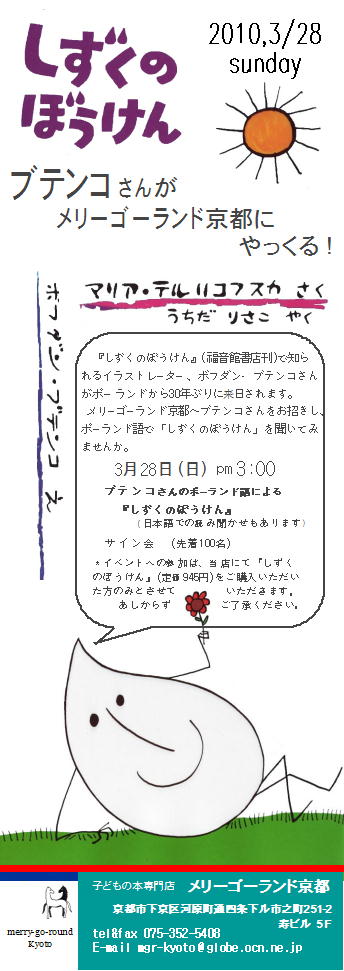 2010,3/28
sunday
しずくの
ぼうけん
ブテンコさんが
メリーゴーランド京都に
やっくる！
マリア・テルリコフスカ さく
うちだ りさこ やく
ボフダン・ブテンコ え
『しずくのぼうけん』(福音館書店刊)で知ら
れるイラストレーター、ボフダン・ブテンコさん
がポーランドから30年ぶりに来日されます。
メリーゴーランド京都へブテンコさんをお招きし、
ポーランド語で「しずくのぼうけん」を聞いてみ
ませんか。
3月28日(日) pm3:00
ブテンコさんのポーランド語による
『しずくのぼうけん』
(日本語での読み聞かせもあります)
サイン会 (先着100名)
*イベントへの参加は、当店にて『しずく
のぼうけん』(定価945円)をご購入いただい
た方のみとさせて いただきます。
あしからず ご了承ください。
merry-go-round
Kyoto
子どもの本専門店 メリーゴーランド京都
京都市下京区河原町通四条下ル市之町251-2
寿ビル 5F
tel&fax 075-352-5408
E-mail mgr-kyoto@globe.ocn.ne.jp